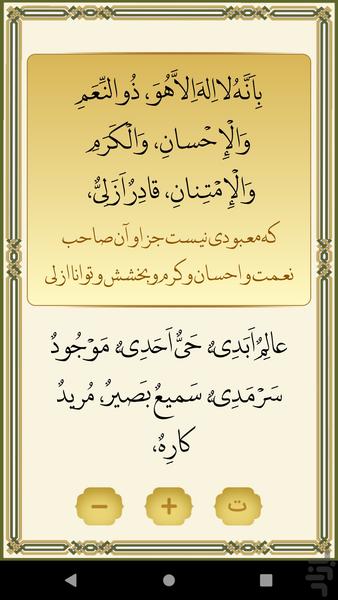 بِاَنَّهُ لا اِلهَ اِلاَّ هُوَ، ذُو النِّعَمِ
وَالْاِحْسانِ، وَالْكَرَمِ
وَالْاِمْتِنانِ، قادِرٌ اَزَلِىٌّ،
که معبودی نیست جز او آن صاحب
نعمت و احسان و کرم و بخشش و توانا ازلی
عالِمٌ اَبَدِىٌّ، حَىٌّ اَحَدِىٌّ، مَوْجُودٌ
سَرْمَدِىٌّ، سَميعٌ بَصيرٌ، مُريدٌ
كارِهٌ،
− + ت
بازار